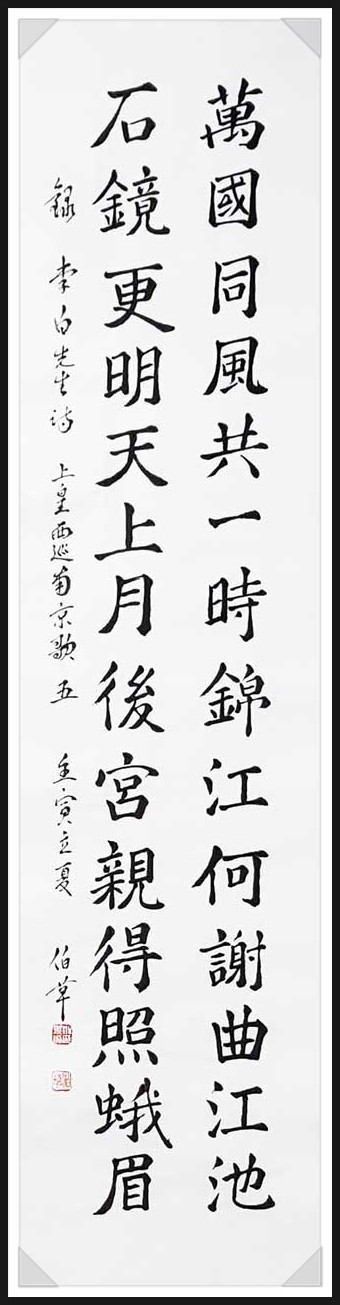 萬國同風共一時錦江何謝曲江池
石鏡更明天上月後宮親得照蛾眉
錄 李白先生诗 上皇西巡南京歌 五 壬寅立夏 伯草